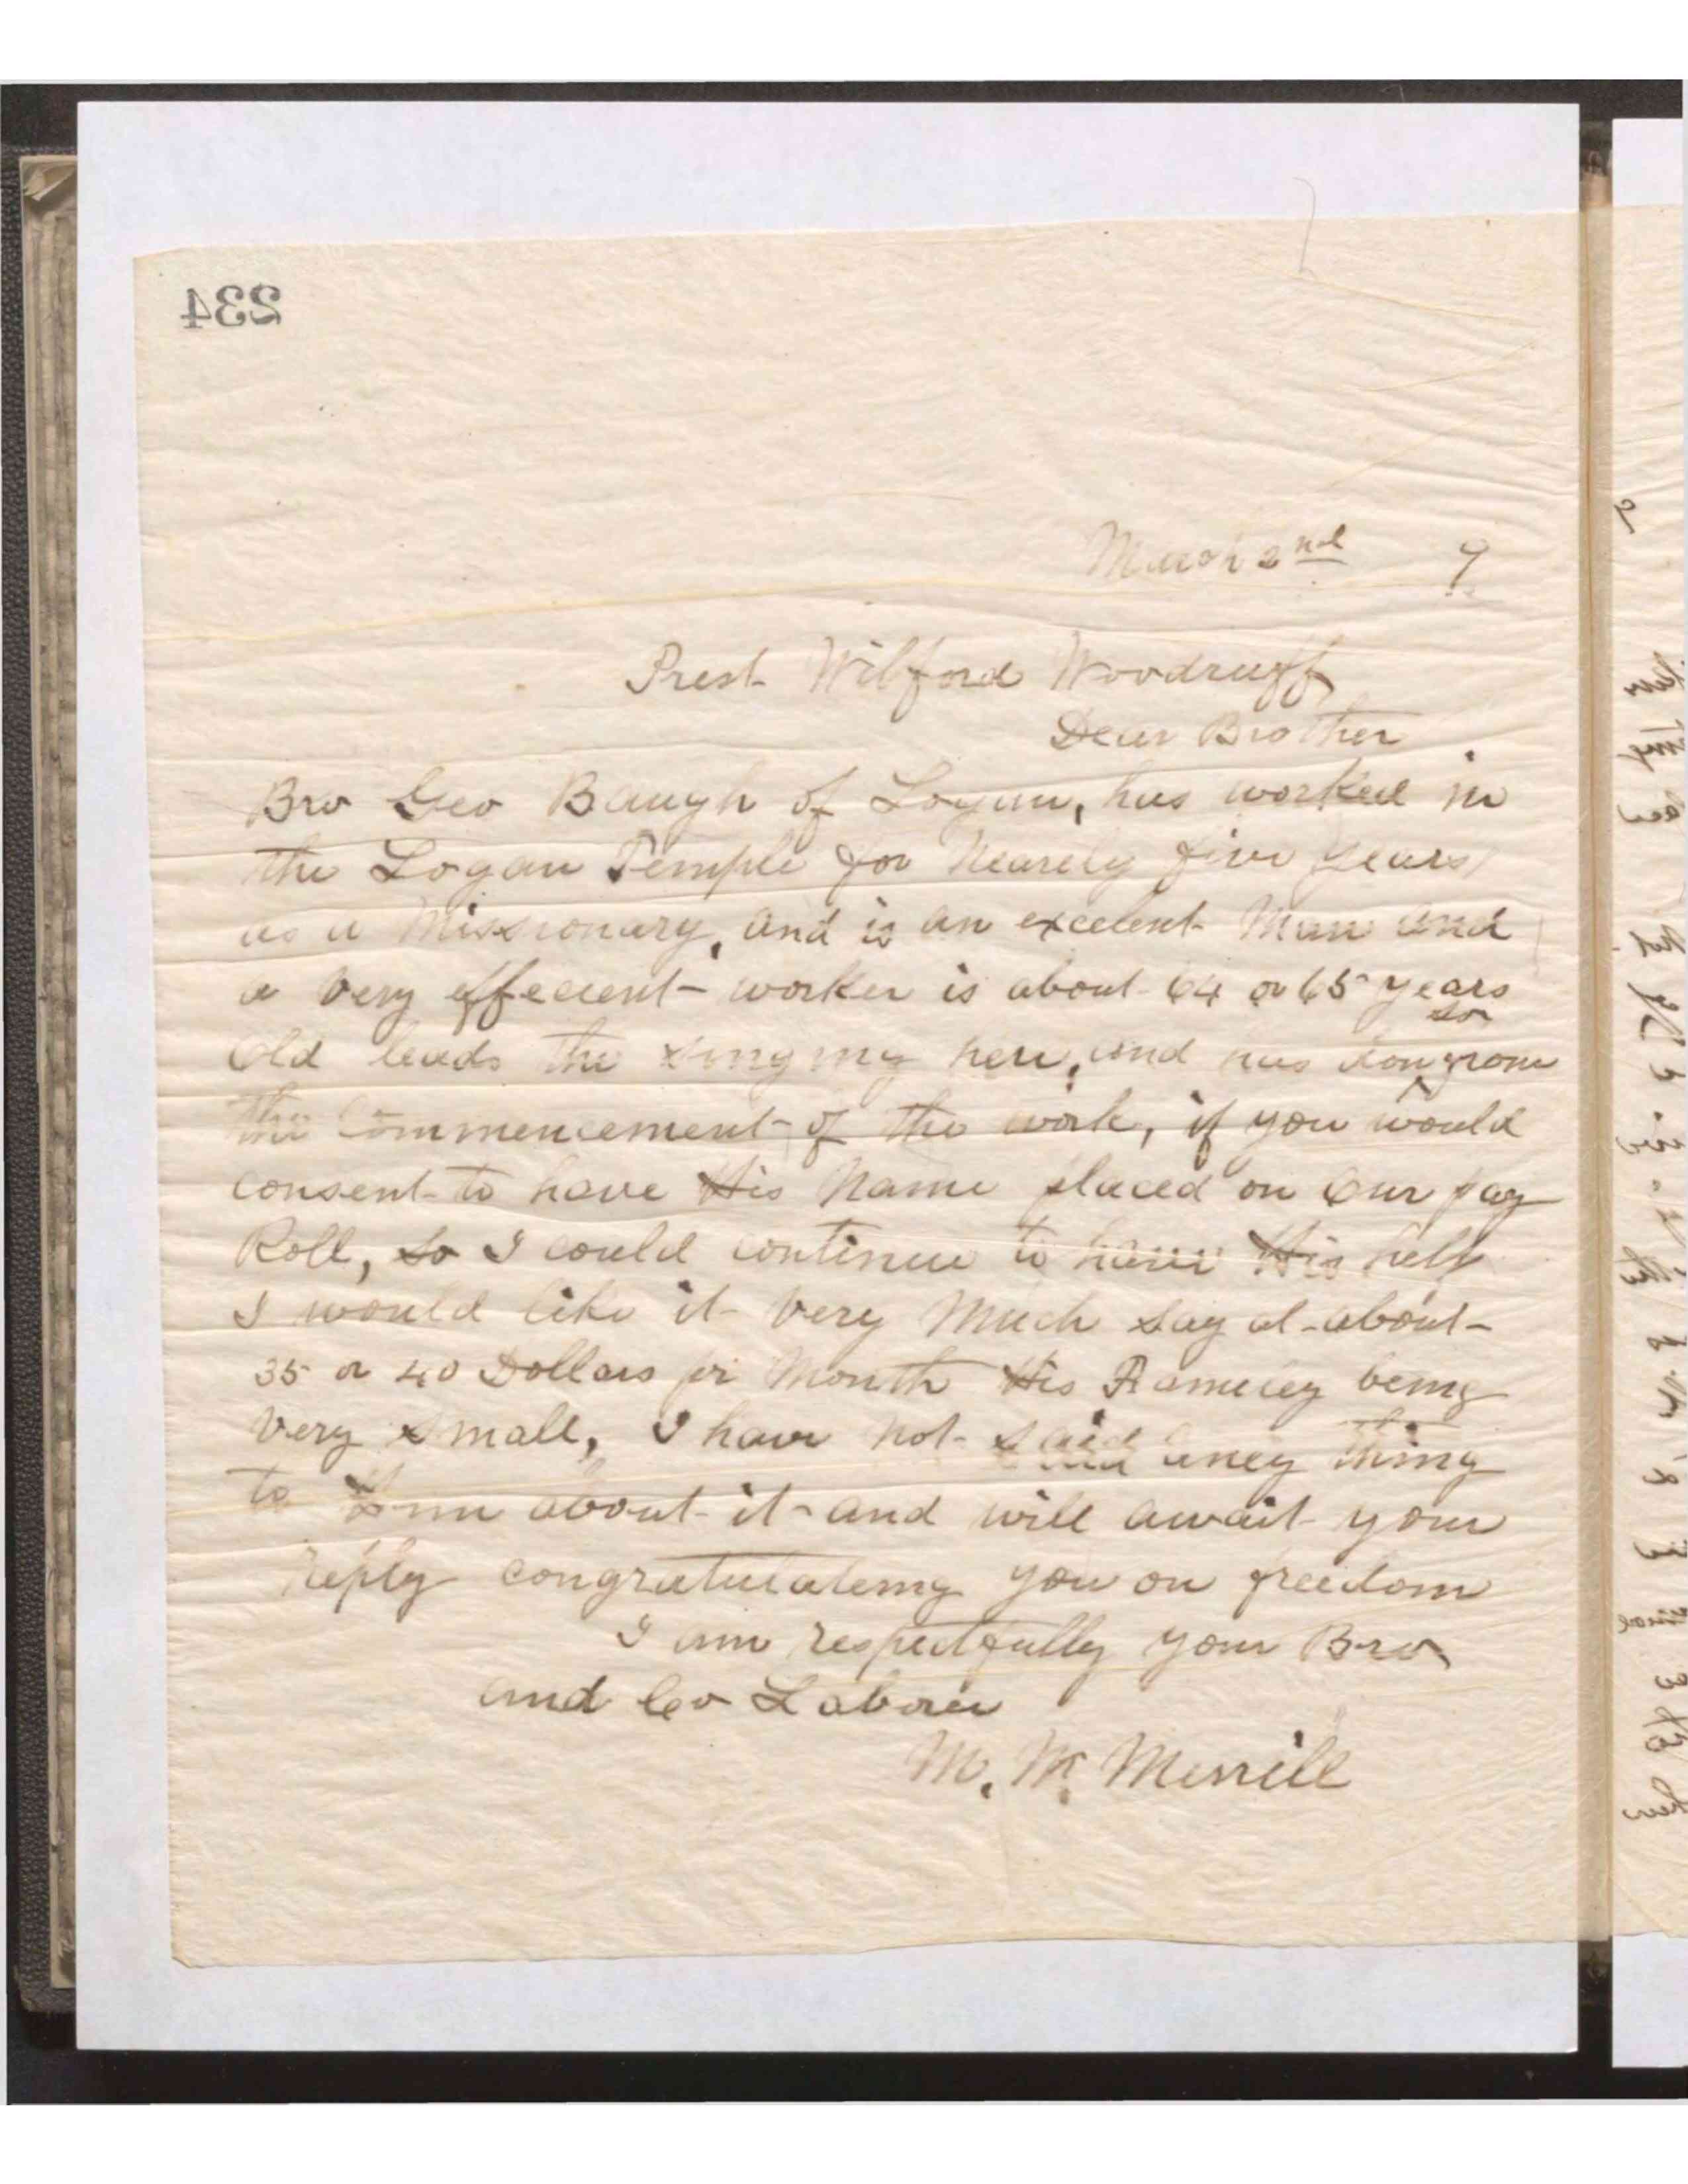 234
March 2nd 9
Prest Wilford Woodruff
Dear Brother
Bro Geo Baugh of Logan, has worked in
the Logan Temple for Nearely five years
as a Missionary, and is an excelent Man and
a very effecient worker is about 64 or 65 years
so
Old leads the singing here, and has don from
the commencement of the work, if you would
consent to have His Name placed on Our pay
Roll, so I could continue to have His help
I would like it very Much say at about
35 or 40 Dollars pr Month His Familey being
very small, I have not said aney thing
to Him about it and will await your
reply congratulateing you on freedom
I am respectfully your Bro
and Co Laborer
M. W. Merrill